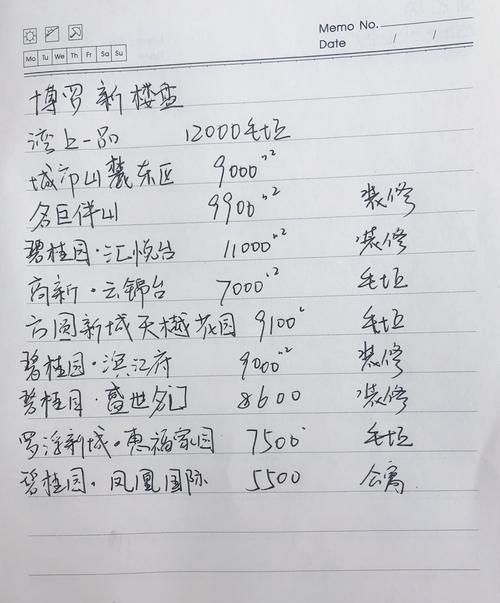 Memo No.
Mo Tu We Th Fr Sa Su
Date / /
博罗新楼盘
湾上一品 12000毛坯
城市山麓东区 9000
名巨伴山 9900 装修
碧桂园·汇悦台 11000 装修
高新·云锦台 7000 毛坯
方圆新城天樾花园 9100 毛坯
碧桂园·滨江府 9000 装修
碧桂园·盛世名门 8600 装修
罗浮新城·惠福家园 7500 毛坯
碧桂园·凤凰国际 5500 公寓